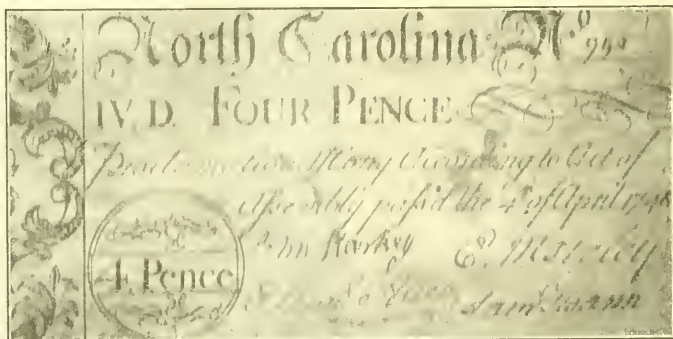 North Carolina No
IV.D. FOUR PENCE
Proclamation Money According to Act of
Assembly passed the 4th of April 1748
4 Pence
John Starkey